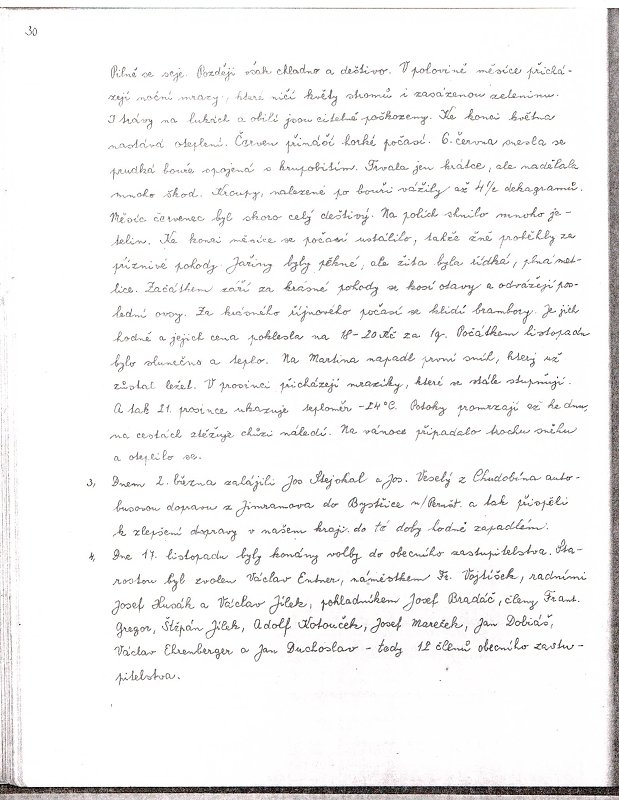 30
Pilně se seje. Později však chladno a deštivo. V polovině měsíce přichá-
zejí noční mrazy, které ničí květy stromů i zasázenou zeleninu.
I trávy na lukách a obilí jsou citelně poškozeny. Ke konci května
nastává oteplení. Červen přináší horké počasí. 6. června snesla se
prudká bouře spojená s krupobitím. Trvala jen krátce, ale nadělala
mnoho škod. Kroupy, nalezené po bouři vážily až 4 1/2 dekagramů.
Měsíc červenec byl skoro celý deštivý. Na polích shnilo mnoho je-
telin. Ke konci měsíce se počasí ustálilo, takže žně proběhly za
příznivé pohody. Jařiny byly pěkné, ale žita byla řídká, plná met-
lice. Začátkem září za krásné pohody se kosí otavy a odvážejí pos-
lední ovsy. Za krásného říjnového počasí se klidí brambory. Je jich
hodně a jejich cena poklesla na 18-20 Kč za 1q. Počátkem listopadu
bylo slunečno a teplo. Na Martina napadl první sníh, který už
zůstal ležet. V prosinci přicházejí mrazíky, které se stále stupňují.
A tak 21. prosince ukazuje teploměr -24°C. Potoky promrzají až ke dnu,
na cestách ztěžuje chůzi náledí. Na vánoce připadalo trochu sněhu
a oteplilo se.
3, Dnem 2. března zahájili Jos Štejskal a Jos. Veselý z Chudobína auto-
busovou dopravu z Jimramova do Bystřice n/Pernšt. a tak přispěli
k zlepšení dopravy v našem kraji do té doby hodně zapadlém.
4, Dne 17. listopadu byly konány volby do obecního zastupitelstva. Sta-
rostou byl zvolen Václav Entner, náměstkem Fr. Vojtíšek, radními
Josef Husák a Václav Jílek, pokladníkem Josef Bradáč, členy Frant.
Gregor, Štěpán Jílek, Adolf Kotouček, Josef Mareček, Jan Dobiáš,
Václav Ehrenberger a Jan Duchoslav - tedy 12 členů obecního zastu-
pitelstva.